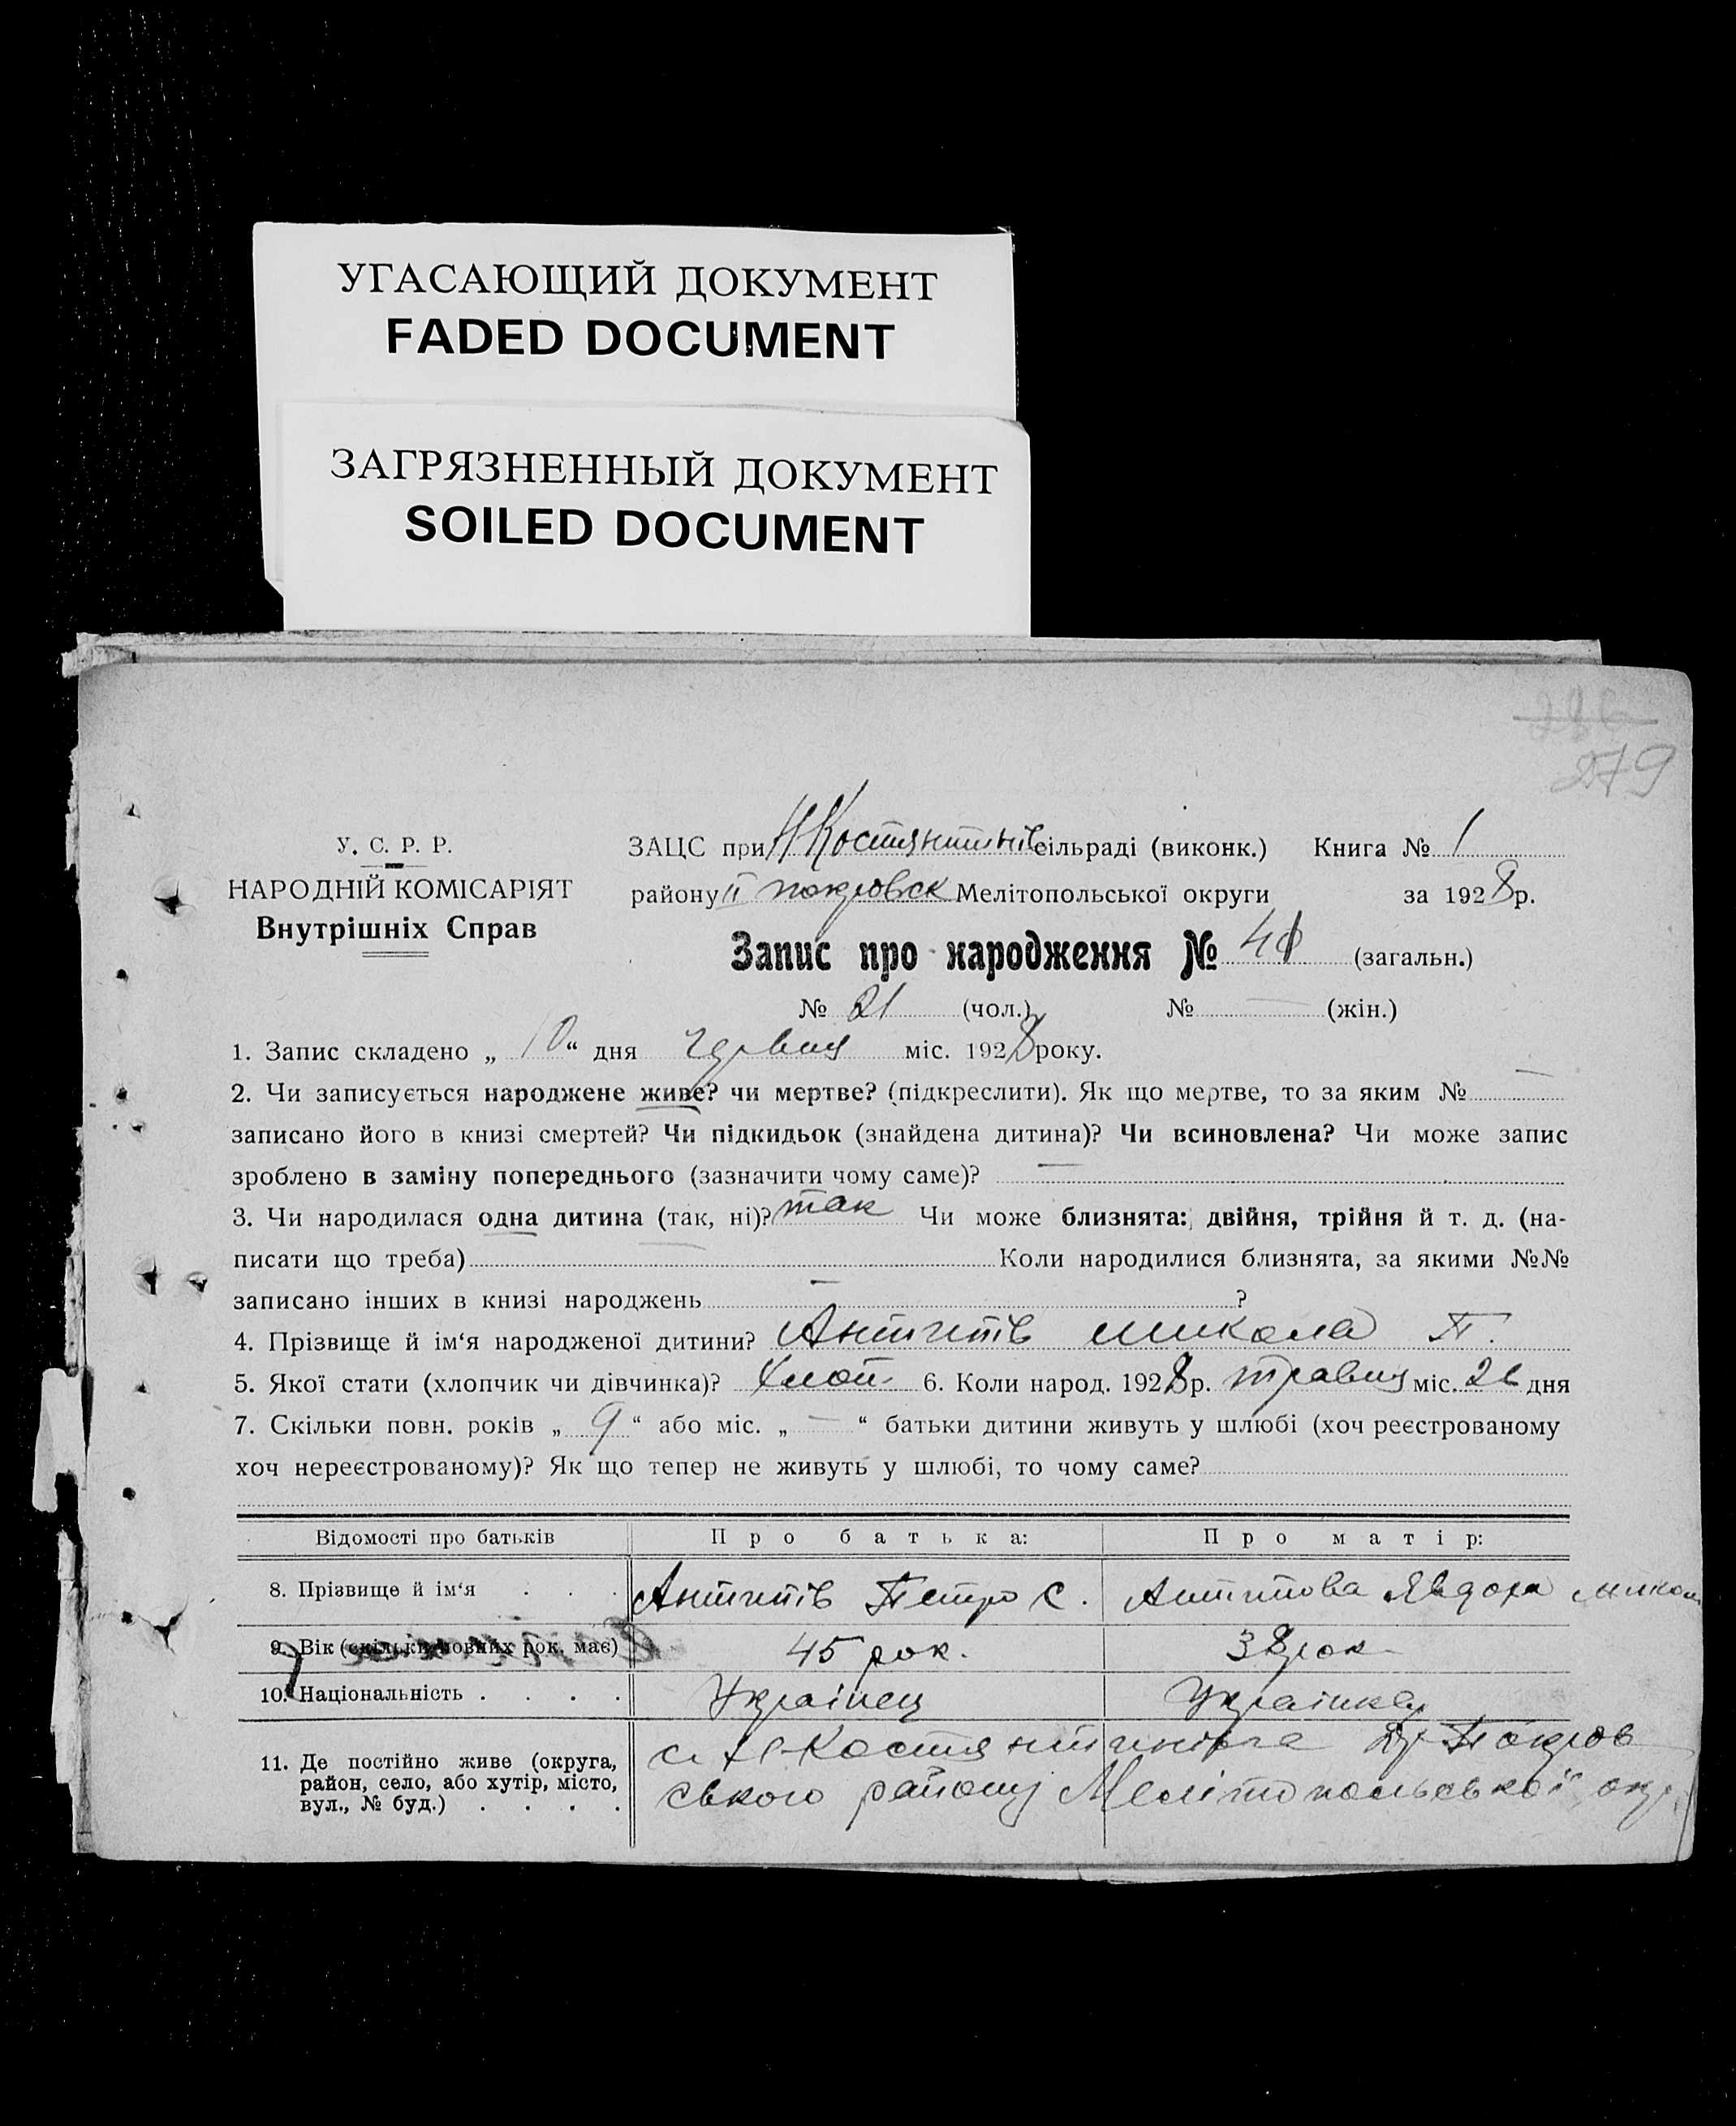 УГАСАЮЩИЙ ДОКУМЕНТ
FADED DOCUMENT
ЗАГРЯЗНЕННЫЙ ДОКУМЕНТ
SOILED DOCUMENT
279
У. С. Р. Р.
НАРОДНІЙ КОМІСАРІЯТ
Внутрішніх Справ
ЗАЦС при Н Костянтинів сільраді (виконк.) Книга № 1
району II покровськ Мелітопольської округи за 1928 р.
Запис про народження № (загальн.)
№ 21 (чол.) № — (жін.)
1. Запис складено „ 10 “ дня червня міс. 1928 року.
2. Чи записується народжене живе? чи мертве? (підкреслити). Як що мертве, то за яким № —
записано його в книзі смертей? Чи підкидьок (знайдена дитина)? Чи всиновлена? Чи може запис
зроблено в заміну попереднього (зазначити чому саме)? —
3. Чи народилася одна дитина (так, ні)? так Чи може близнята: двійня, трійня й т. д. (на-
писати що треба) Коли народилися близнята, за якими №№
записано інших в книзі народжень — ?
4. Прізвище й ім‘я народженої дитини? Антипів Микола П.
5. Якої стати (хлопчик чи дівчинка)? Хлоп 6. Коли народ. 1928 р. травня міс. 26 дня
7. Скільки повн. років „ 9 “ або міс. „ — “ батьки дитини живуть у шлюбі (хоч реєстрованому
хоч нереєстрованому)? Як що тепер не живуть у шлюбі, то чому саме?
Відомості про батьків Про батька: Про матір:
8. Прізвище й ім‘я . . . Антипів Петро С. Антипова Явдоха Микол
9. Вік (скільки повних рок. має) 45 рок. 38 рок
10. Національність . . . . Українець Українка
11. Де постійно живе (округа,
район, село, або хутір, місто,
вул., № буд.) . . . .
с Н-Костянтинівка Покров
ського району Мелітопольської окр.